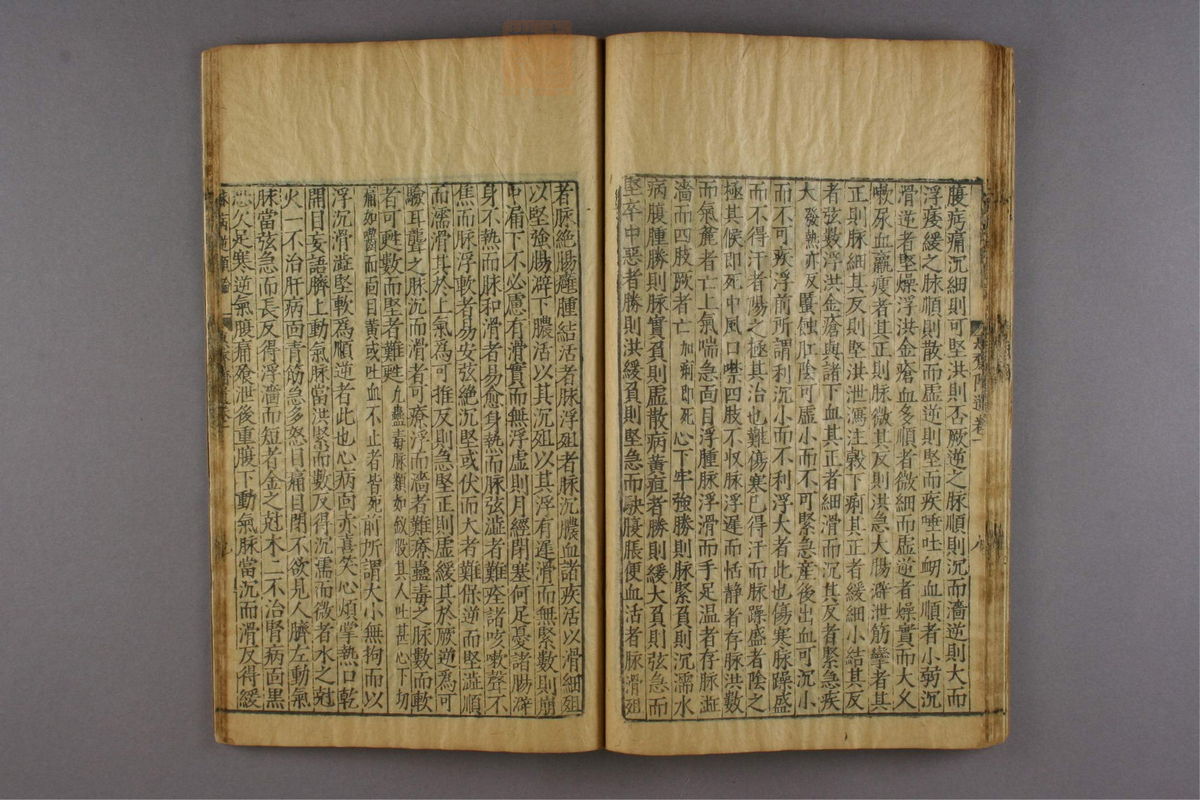 腹病痛沉細則可堅洪則否厥逆之脉順則沉而濇逆則大而
浮痿緩之脉順則散而虛逆則堅而疾唾吐衂血順者小弱沉
滑逆者堅燥浮洪金瘡血多順者微細而虛逆者燥實而大又
嗽尿血羸瘦者其正則脉微其反則洪急大腸澼泄筋攣者其
正則脉細其反則堅洪泄瀉注穀下痢其正者緩細小結其反
者弦數浮洪金瘡與諸下血其正者細滑而沉其反者緊急疾
大發熱亦反䘌蝕肛陰可虛小而不可緊急産後出血可沉小
而不可疾浮前所謂利沉小而不利浮大者此也傷寒脉躁盛
而不得汗者陽之極其治也難傷寒已得汗而脉躁盛者陰之
極其候即死中風口噤四肢不収脉浮遲而恬靜者存脉洪數
而氣麄者亡上氣喘急面目浮腫脉浮滑而手足温者存脉澁
濇而四肢厥者亡加痢即死心下牢強勝則脉緊負則沉濡水
病腹腫勝則脉實負則虛散病黄疸者勝則緩大負則弦急而
堅卒中惡者勝則洪緩負則堅急而駃腹脹便血活者脉滑殂
者脉絶腸癰腫結活者脉浮殂者脉沉膿血諸疾活以滑細殂
以堅強腸澼下膿活以其沉殂以其浮有遲滑而無緊數則崩
中痛下不必慮有滑實而無浮虛則月經閉塞何足憂諸腸澼
身不熱而脉和滑者易愈身熱而脉弦澁者難痊諸咳嗽聲不
焦而脉浮軟者易安弦絶沉堅或伏而大者難併逆而堅澁順
而濡滑其於上氣爲可推反則急堅正則虛緩其於厥逆爲可
驗耳聾之脉沉而滑者可療浮而濇者難療蠱毒之脉數而軟
者可甦數而堅者難甦凢蠱毒脉類如釵股其人吐甚心下切
痛如嚙面目黄或吐血不止者皆死前所謂大小無拘而以
浮沉滑澁堅軟爲順逆者此也心病面赤喜笑心煩掌熱口乾
開目妄語臍上動氣脉當洪緊而數反得沉濡而微者水之尅
火一不治肝病面青筋急多怒目痛目閉不欲見人臍左動氣
脉當弦急而長反得浮濇而短者金之尅木二不治腎病面黒
恐久足寒逆氣腹痛飱泄後重腹下動氣脉當沉而滑反得緩